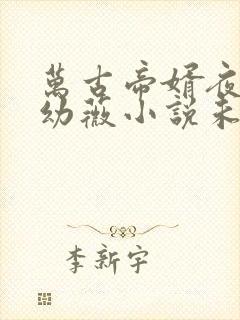 萬古帝婿夜
幼薇小說未
李新宇